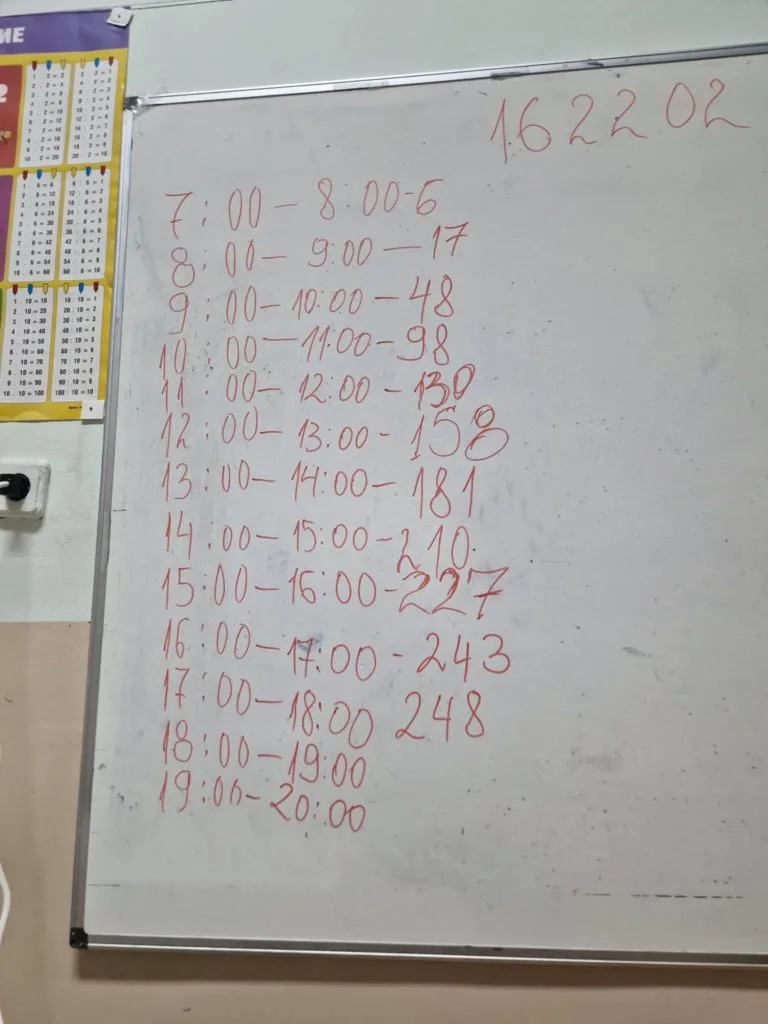 ИЕ
162202
7:00 – 8:00-6
8:00 – 9:00 – 17
9:00 – 10:00 – 48
10:00 – 11:00 – 98
11:00 – 12:00 – 130
12:00 – 13:00 - 158
13:00 – 14:00 – 181
14:00 – 15:00 – 210
15:00 – 16:00 - 227
16:00 – 17:00 - 243
17:00 – 18:00 248
18:00 – 19:00
19:00 – 20:00